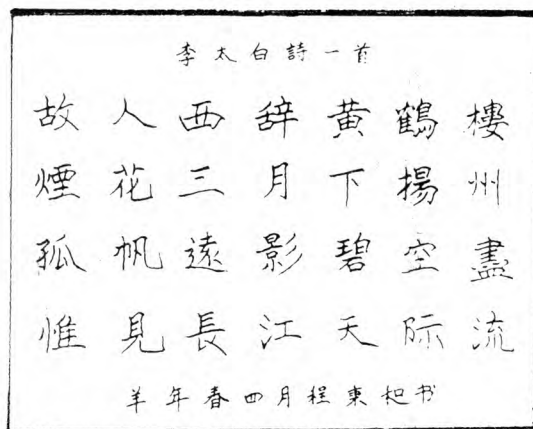 李太白詩一首
故人西辞黃鶴樓
煙花三月下揚州
孤帆遠影碧空盡
惟見長江天际流
羊年春四月程東和书